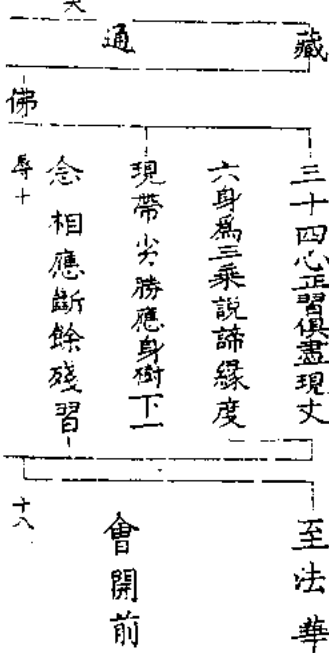 藏
通
佛
三十四心正習俱盡現丈
六身為三乘說諦緣度
現帶劣勝應身樹下一
念相應斷餘殘習
辱十
至法華
會開前
十八